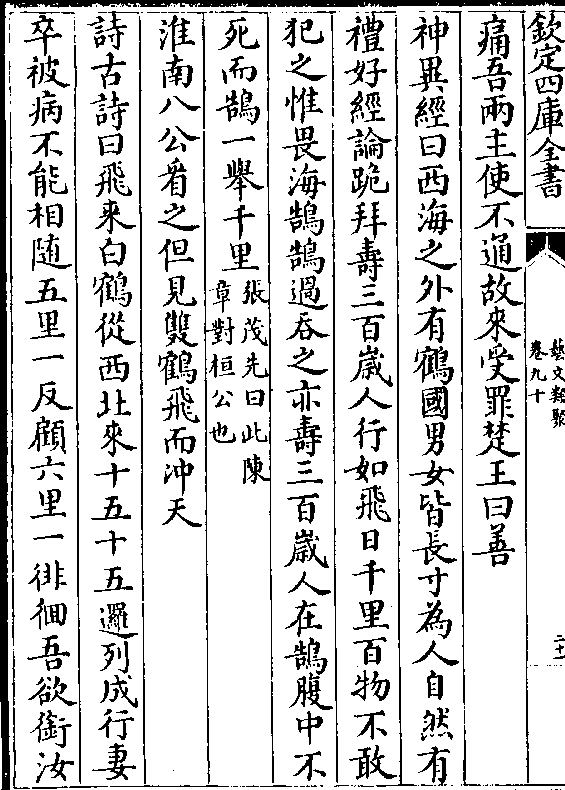 欽定四庫全書
藝文類聚
卷九十
二十
痛吾兩主使不通故來受罪楚王曰善
神異經曰西海之外有鶴國男女皆長寸為人自然有
禮好經論跪拜壽三百歲人行如飛日千里百物不敢
犯之惟畏海鵠鵠過吞之亦壽三百歲人在鵠腹中不
死而鵠一舉千里張茂先曰此陳
章對桓公也
淮南八公看之但見雙鶴飛而沖天
詩古詩曰飛來白鶴從西北來十五十五邏列成行妻
卒被病不能相隨五里一反顧六里一徘徊吾欲銜汝